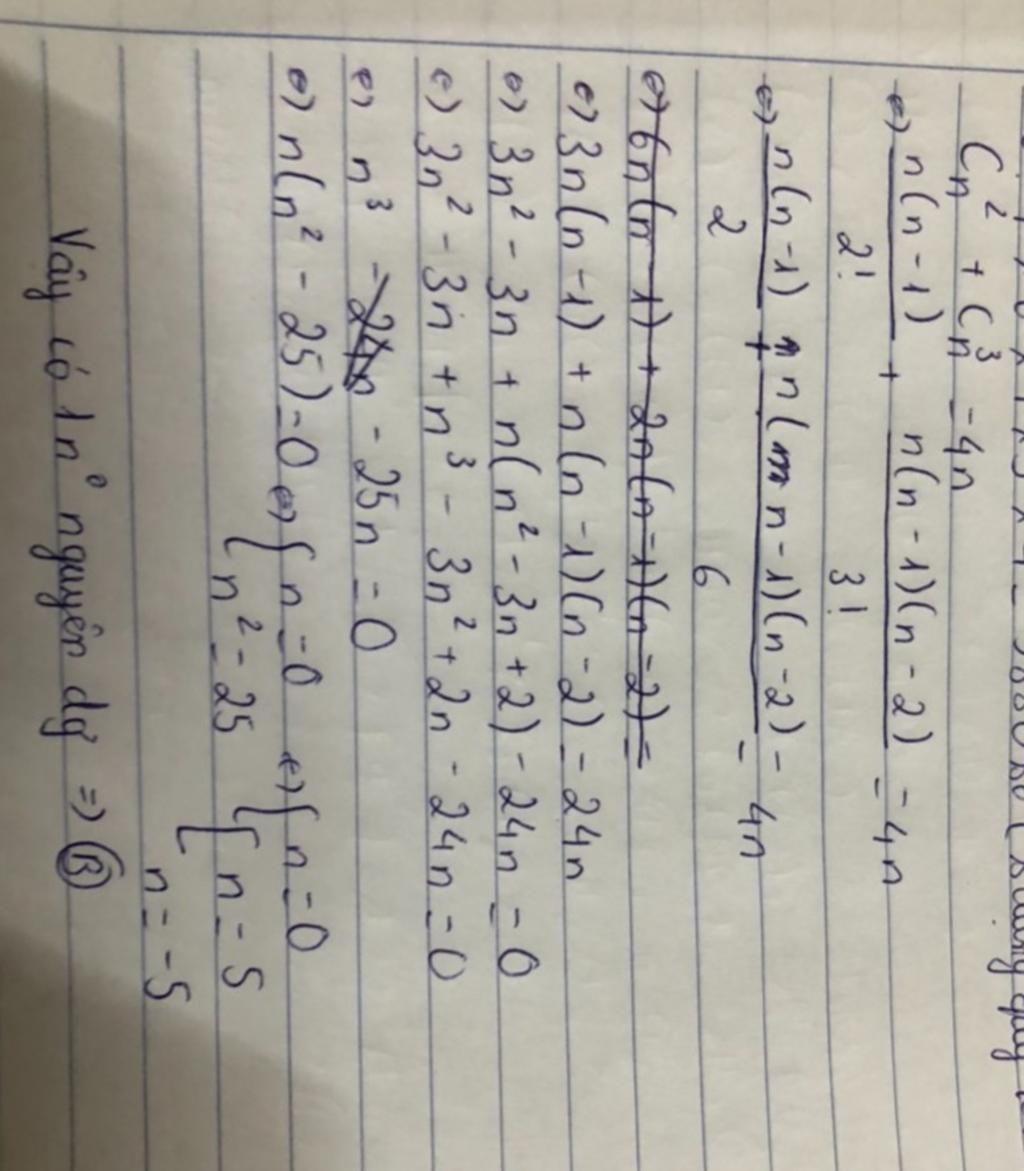 C_n^2 + C_n^3 = 4n
⇔ n(n-1)/2! + n(n-1)(n-2)/3! = 4n
⇔ n(n-1)/2 + n(n-1)(n-2)/6 = 4n
⇔ 6n(n-1) + 2n(n-1)(n-2) =
⇔ 3n(n-1) + n(n-1)(n-2) = 24n
⇔ 3n² - 3n + n(n² - 3n + 2) - 24n = 0
⇔ 3n² - 3n + n³ - 3n² + 2n - 24n = 0
⇔ n³ - 24n - 25n = 0
⇔ n(n² - 25) = 0 ⇔ { n = 0 ⇔ { n = 0
{ n² = 25 { { n = 5
n = -5
Vậy có 1 nº nguyên dg ⇒ B